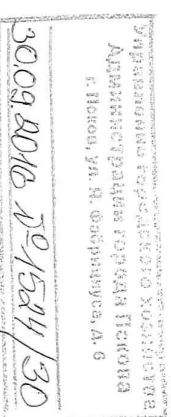 Управление городского хозяйства
Администрации города Пскова
г. Псков, ул. Я. Фабрициуса д. 6
30.09.2016 № 1524/30